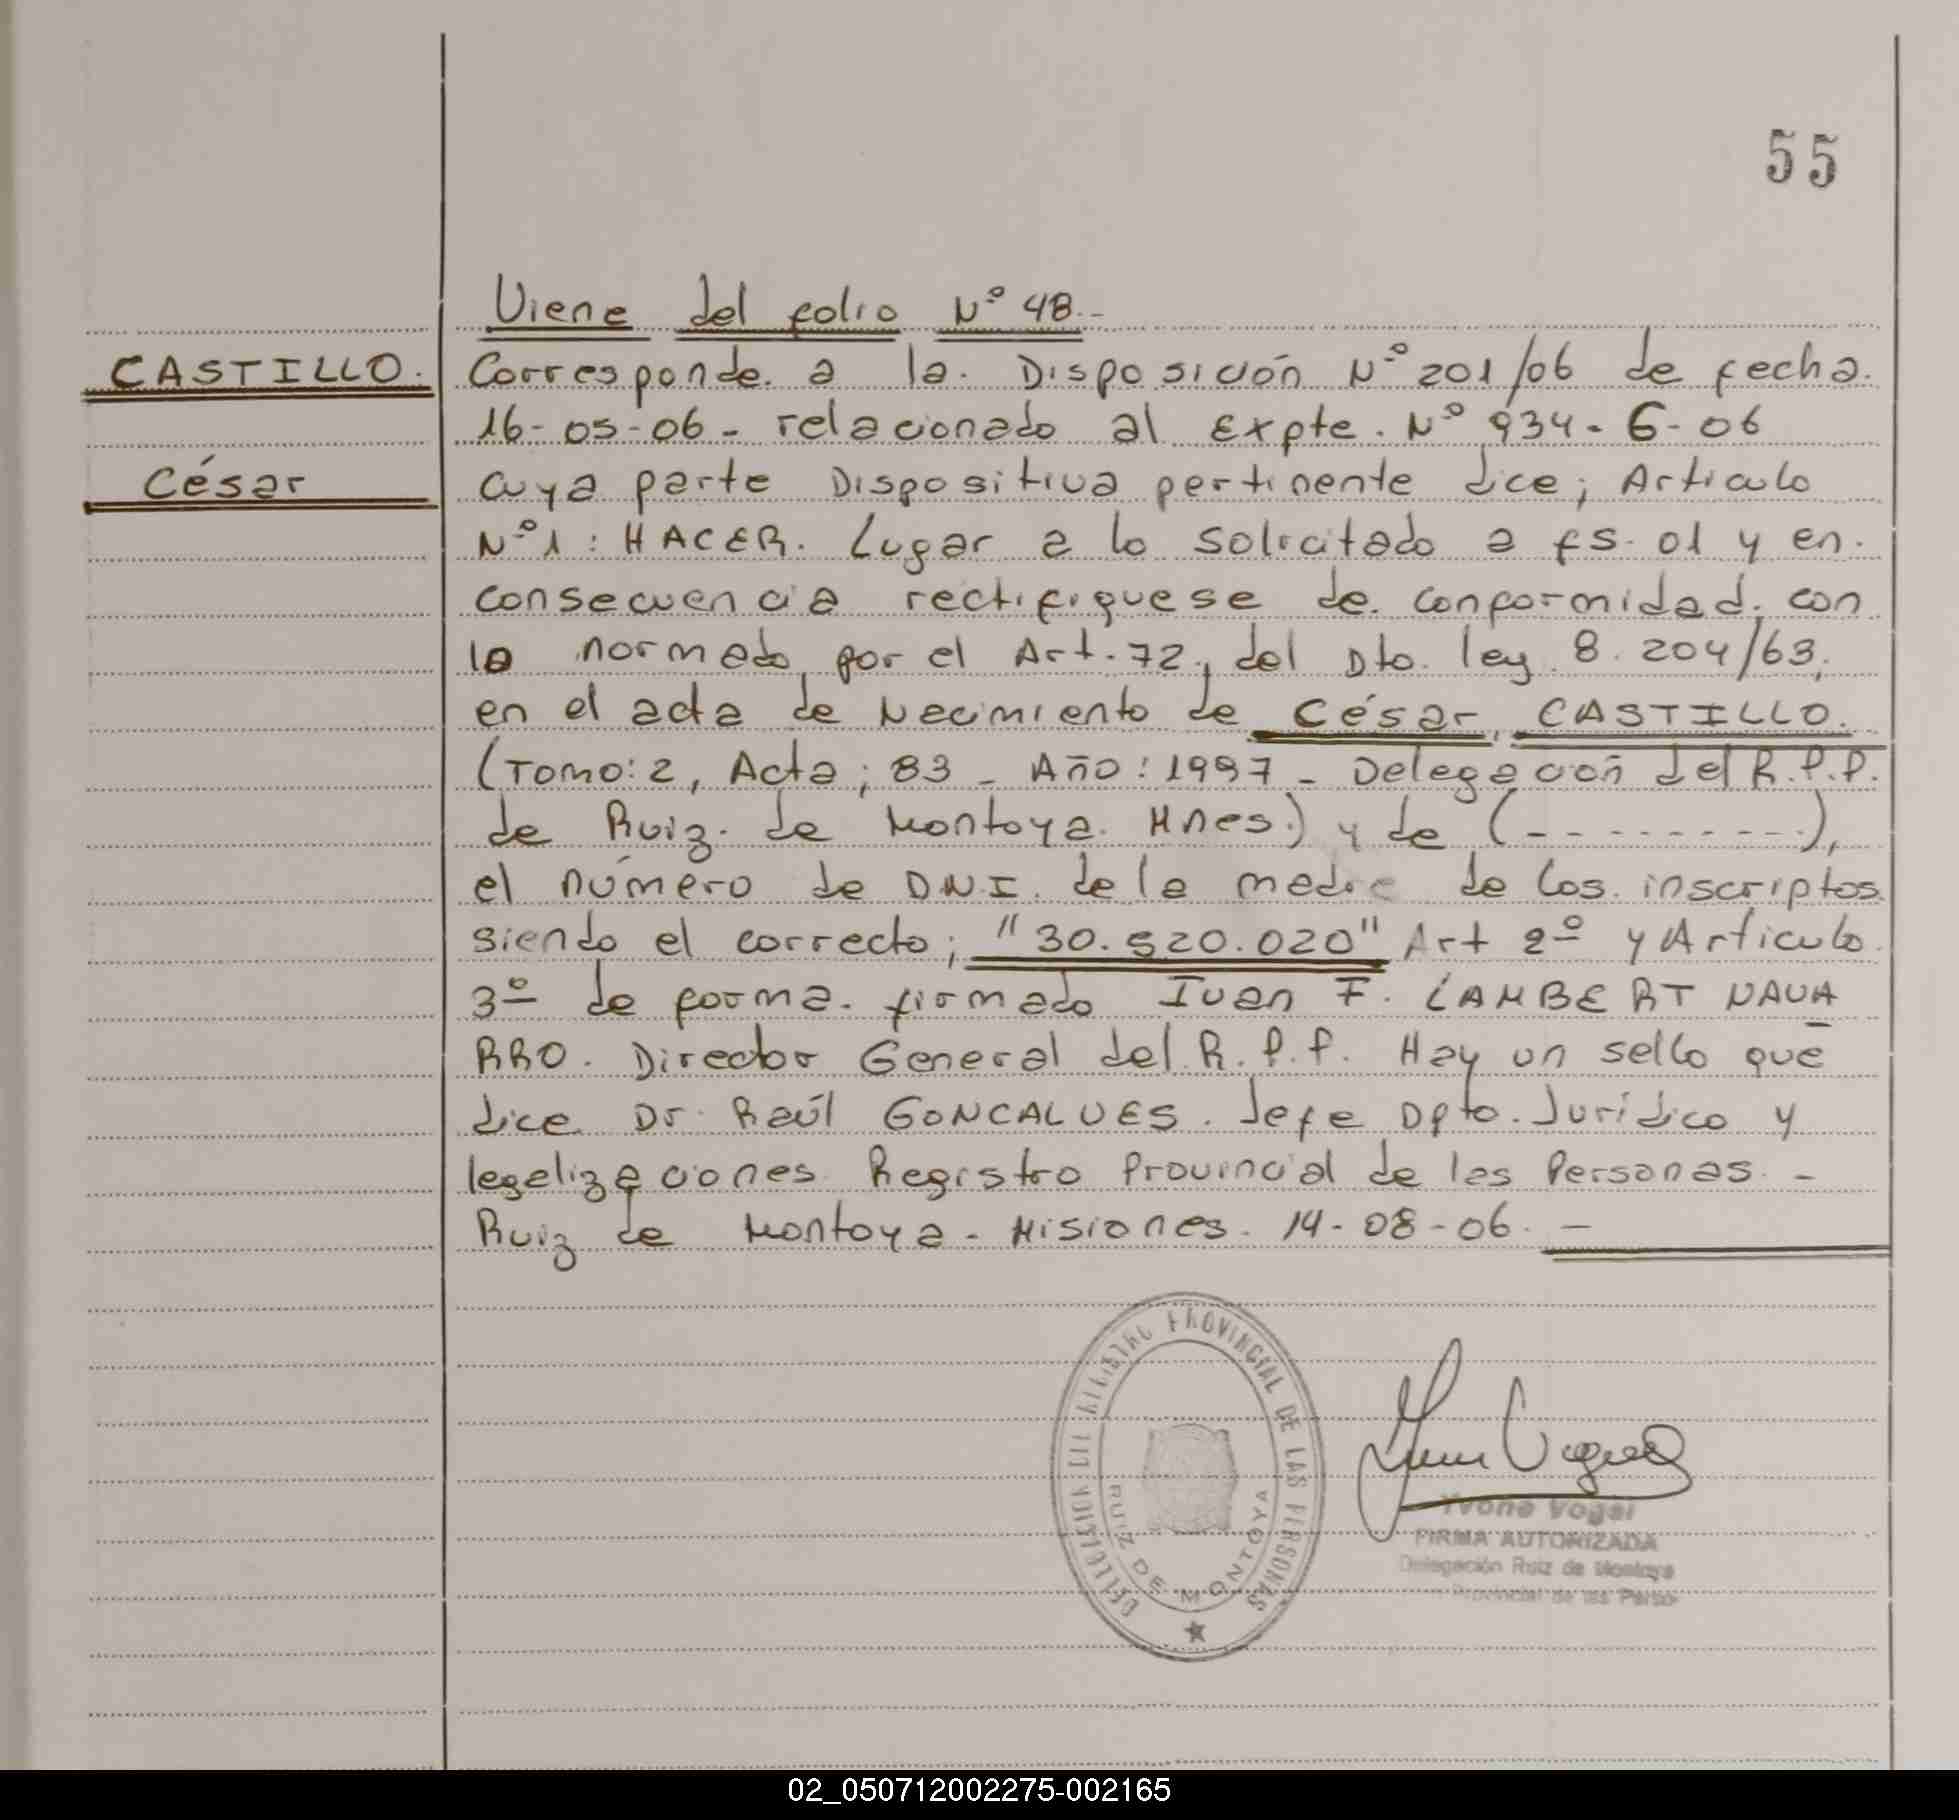 55
Viene del folio Nº 48.-
CASTILLO.
César
Corresponde. a la. Disposición Nº 201/06 de fecha.
16-05-06 - relacionado al Expte. Nº 934-6-06
cuya parte Dispositiva pertinente dice; Articulo
Nº1: HACER. Lugar a lo solicitado a fs. 01 y en.
consecuencia rectifiquese de. conformidad. con
lo normado por el Art. 72., del Dto. ley 8.204/63,
en el acta de Nacimiento de César, CASTILLO.
(Tomo: 2, Acta; 83 - Año: 1997 - Delegación del R.P.P.
de Ruiz. de Montoya. Mnes.) y de (- - - - - - - - -),
el número de D.N.I. de la madre de los. inscriptos
siendo el correcto; "30.520.020" Art 2º y Articulo.
3º de forma. firmado Ivan F. LAMBERT NAVA
RRO. Director General del R.P.P. Hay un sello que
dice Dr. Raúl GONCALVES. Jefe Dpto. Jurídico y
legalizaciones. Registro Provincial de las Personas. -
Ruiz de Montoya - Misiones. 14-08-06. -
DELEGACION DEL REGISTRO PROVINCIAL DE LAS PERSONAS
RUIZ DE MONTOYA
Yvone Vogel
FIRMA AUTORIZADA
Delegación Ruiz de Montoya
Provincial de las Perso
02_050712002275-002165